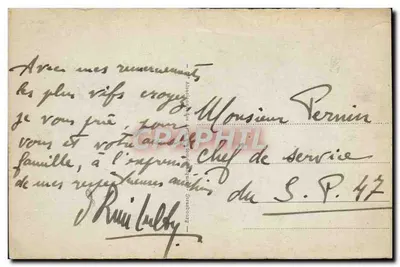 Avec mes remerciements
les plus vifs croyez,
je vous prie, pour
vous et votre aimable
famille, à l'expression
de mes respectueuses amitiés
Monsieur Pernin
Chef de service
du S. P. 47